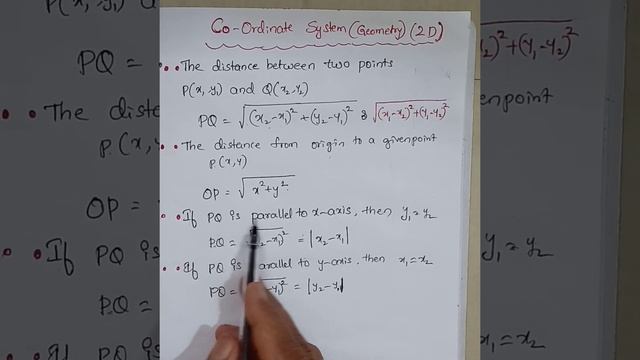 Co-Ordinate System (Geometry) (2D)
The distance between two points
P(x, y₁) and Q(x₂-y₂)
PQ = √(x₂-x₁)² + (y₂-y₁)² & √(x₁-x₂)²+(y₁-y₂)²
The distance from origin to a given point
P(x,y)
OP = √x²+y²
If PQ is parallel to x-axis, then y₁ = y₂
PQ = -x₁)² = |x₂-x₁|
If PQ is parallel to y-axis, then x₁=x₂
PQ = -y₁)² = |y₂-y₁|